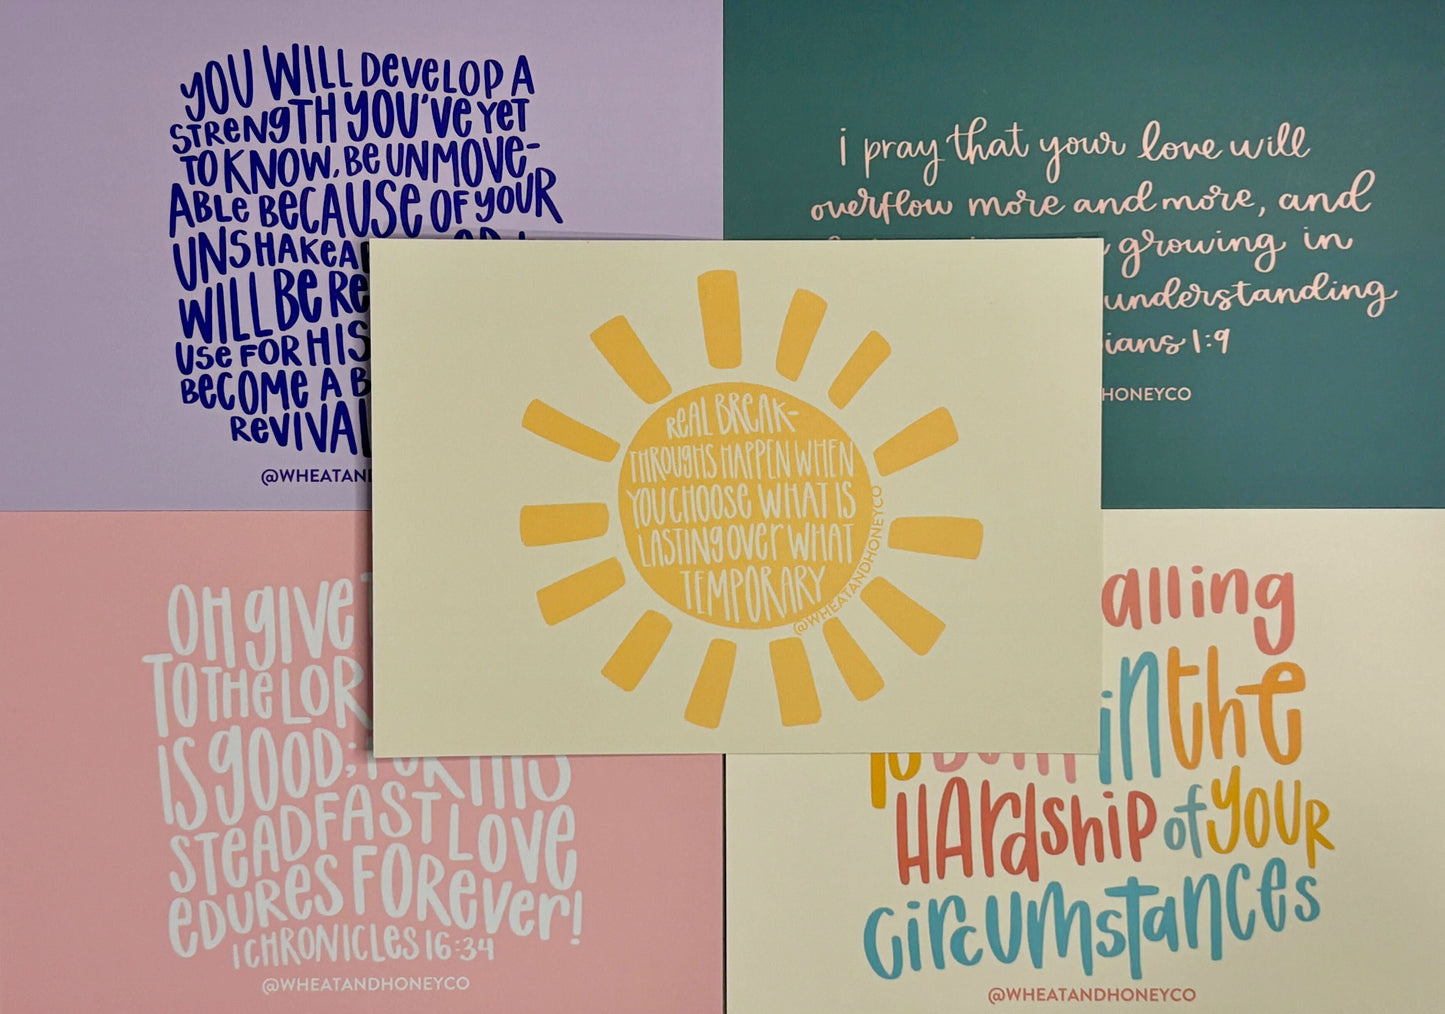 YOU WILL DEVELOP A
STRENGTH YOU'VE YET
TO KNOW. BE UNMOVE-
ABLE BECAUSE OF YOUR
UNSHAKEA
WILL BE RE
USE FOR HIS
BECOME A B
REVIVAL
@WHEATAND
i pray that your love will
overflow more and more, and
growing in
understanding
ians 1:9
HONEYCO
REAL BREAK-
THROUGHS HAPPEN WHEN
YOU CHOOSE WHAT IS
LASTING OVER WHAT
TEMPORARY
@WHEATANDHONEYCO
OH GIVE
TO THE LOR
IS GOOD; FOR HIS
STEADFAST LOVE
EDURES FOREVER!
1 CHRONICLES 16:34
@WHEATANDHONEYCO
alling
in the
HARDSHIP of YOUR
CIRCUMSTANCES
@WHEATANDHONEYCO